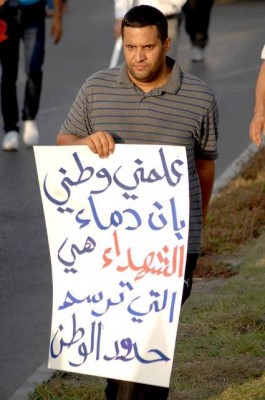 علمني وطني
بان دماء
الشهداء هي
التي ترسم
حدود الوطن